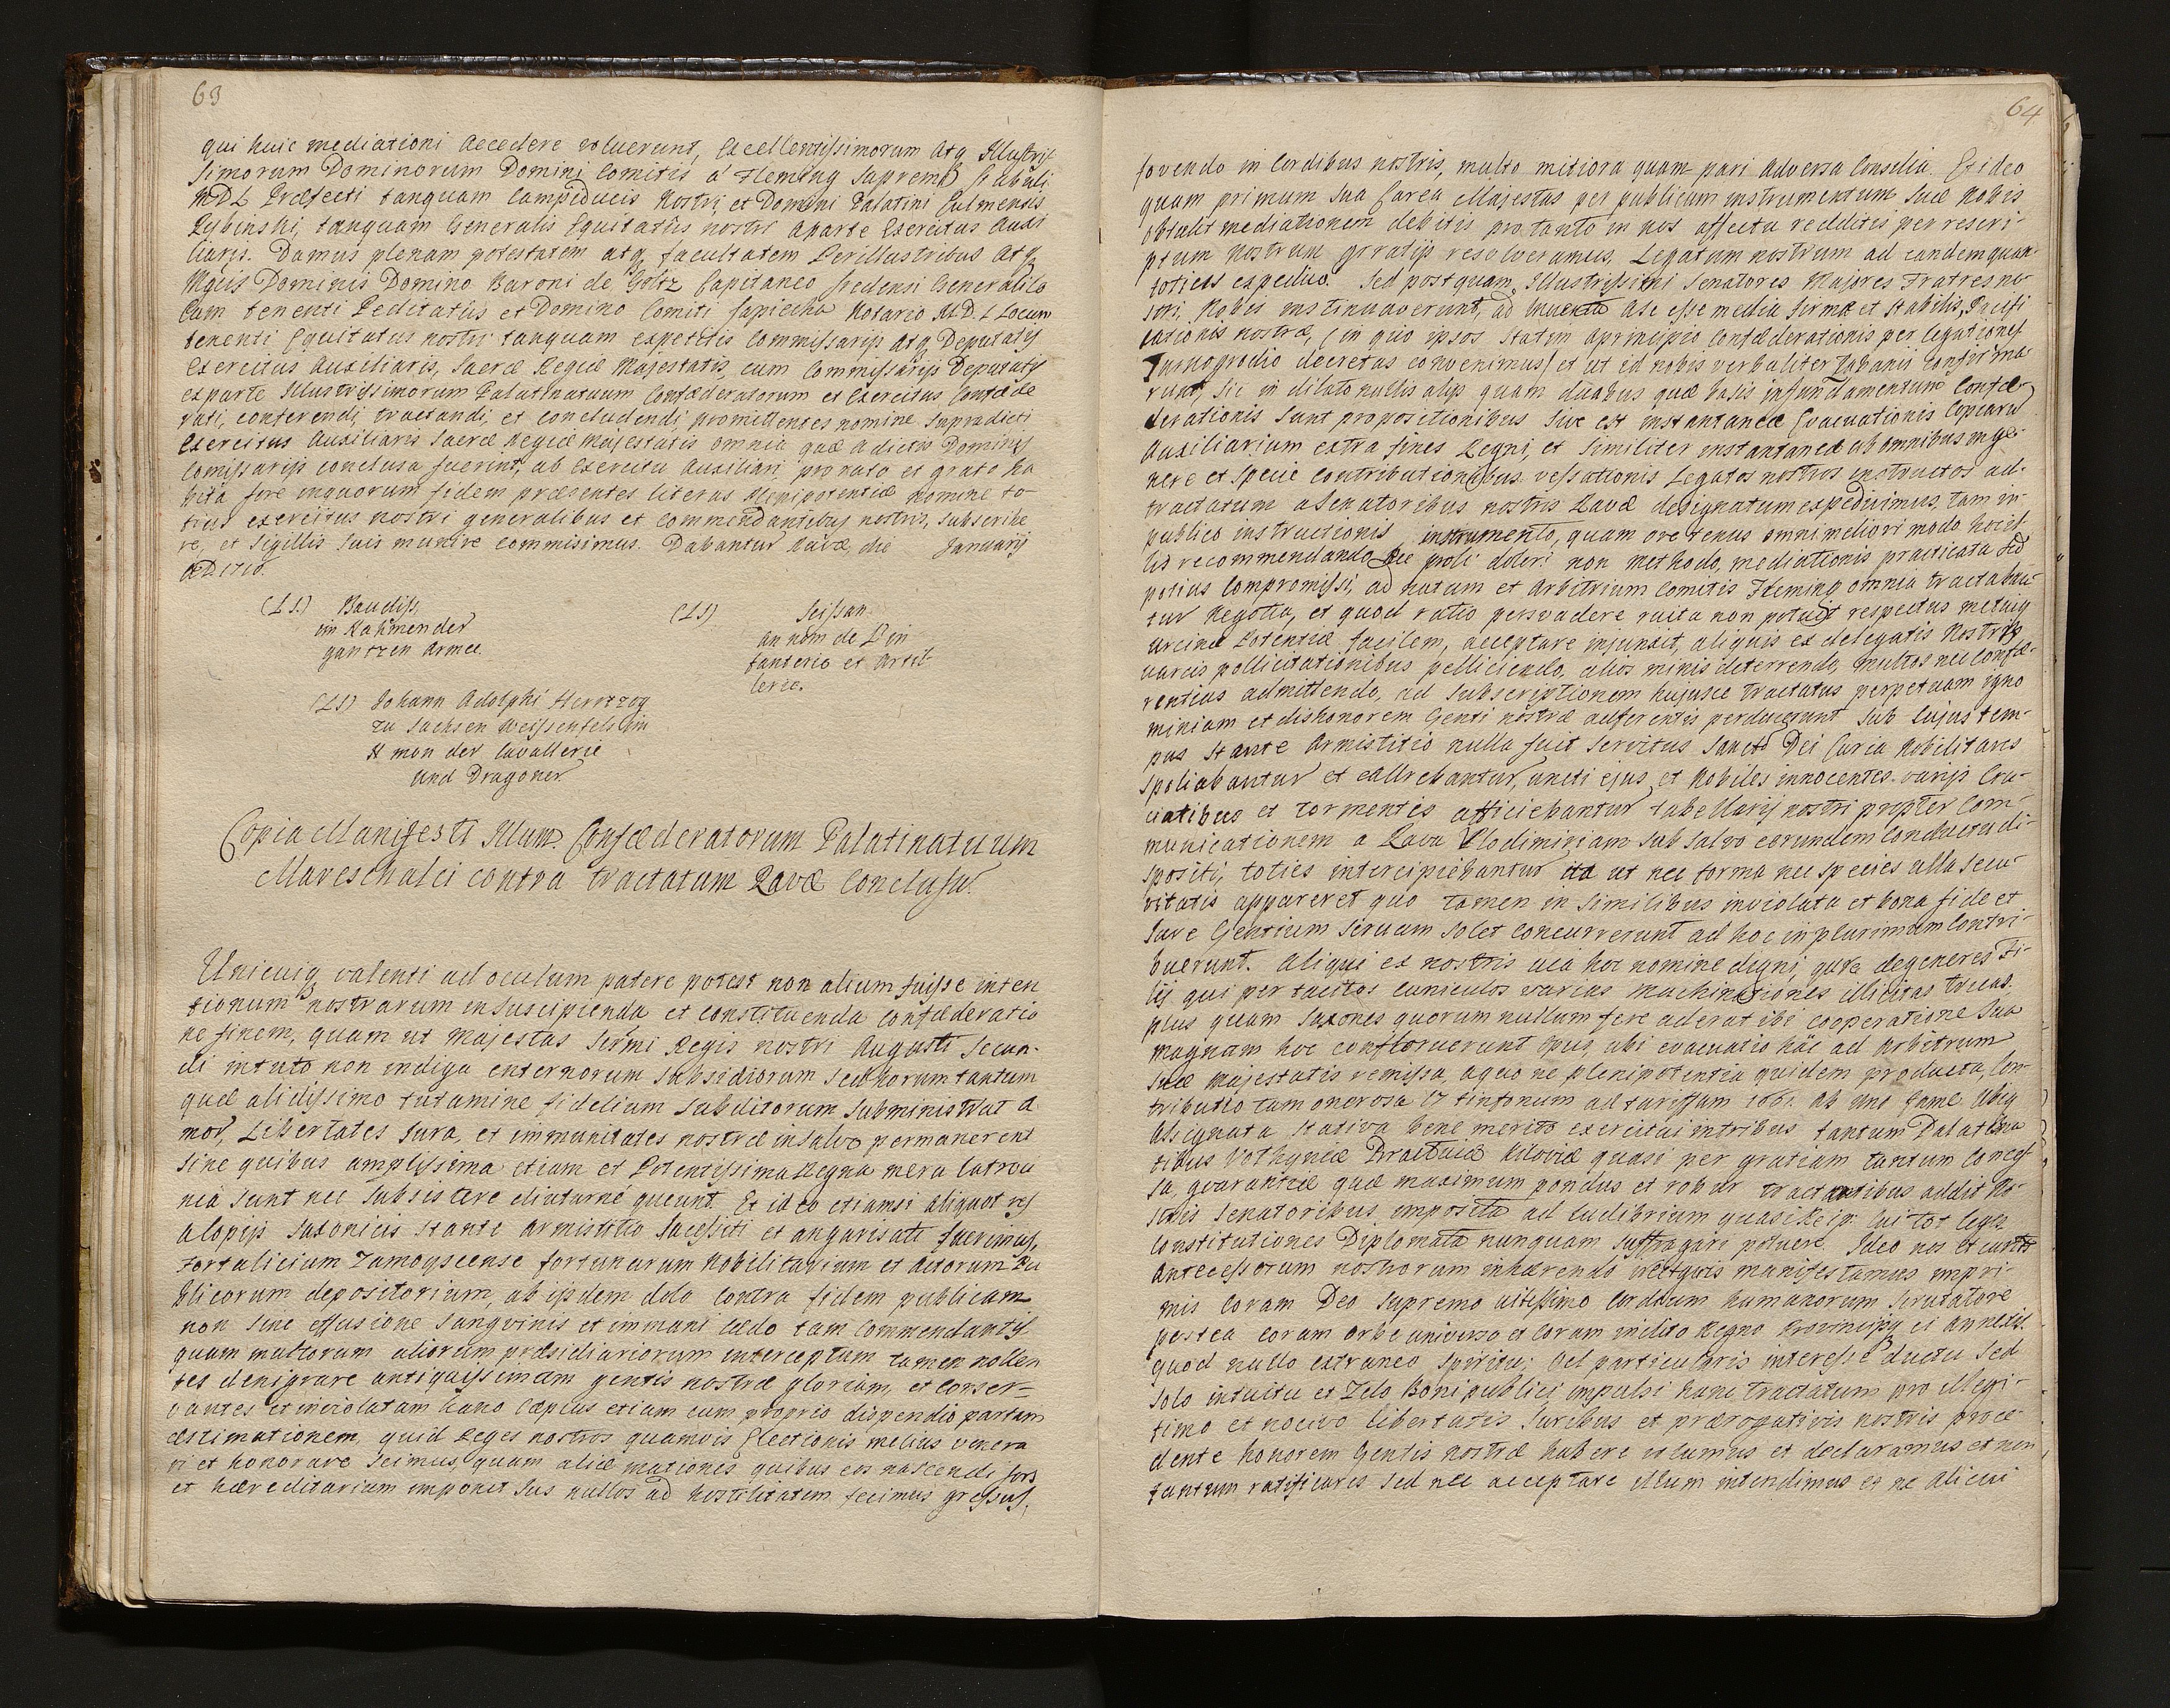 63
qui huic mediationi accedere voluerunt, Excellentissimorum atq Illustris
simorum Dominorum Domini Comitis a Fleming Supremi Stabuli
MDL Præfecti tanquam Campiducis Nostri, et Domini Palatini Culmensis
Rybinski, tanquam Generalis Equitatus nostri aparte Exercitus Auxi
liaris. Damus plenam potestatem atq facultatem Perillustribus Atq
Mgcis Dominis Domino Baroni de Goltz Capitaneo Generali lo
cum tenenti Peditatus et Domino Comiti Sapiecha Notario M.D.L Locum
tenenti Equitatus nostri tanquam expetitis Commissarijs atq Deputatis
Exercitus Auxiliaris, Sacræ Regiæ Majestatis, cum Commissarijs Deputatis
exparte Illustrissimorum Palatinatuum Confæderatorum et Exercitus Confæde
rati, conferendi, tractandi, et concludendi, promittentes nomine supradicti
Exercitus Auxiliaris Sacræ Regiæ Majestatis omnia quæ a dictis Dominis
Comissarijs conclusa fuerint, ab Exercitu Auxiliari, pro rato et grato ha
bita fore inquorum fidem præsentes literas Plenipotentiæ Nomine to-
tius exercitus nostri generalibus et Commendantibus nostris, subscribe
re, et Sigillis suis munire commisimus. Dabantur Ravæ, die Januarij
AD. 1716.
(L S.) Baudiss,
im Nahmen der
gantzen Armee.
(L S) Seissan
an nom de L'in
fanterie et Artil
lerie.
(LS) Johann Adolph Hertzog
zu Sachsen Weissenfels im
N mon der Cavallerie
und Dragoner
Copia Manifesti Illum. Confæderatorum Palatinatuum
Mareschalci contra tractatum Ravæ Conclusu.
Unicuiq valenti ad oculum patere potest non alium fuisse inten
tionum nostrarum in suscipienda et constituenda Confæderatio
ne finem, quam ut Majestas Sermi Regis nostri Augusti Secun-
di in tuto non indiga externorum Subsidiorum sed horum tantum
quæ alidissimo tutamine fidelium Subditorum Subministrat a
mor, Libertates Jura, et immunitates nostræ in salvo permanerent
Sine quibus amplissima etiam et Potentissima Regna mera latroci
nia sunt nec subsistere diuturné queunt. Et ideo etiamsi aliquoties
a Copijs Saxonicis stante armistitio lacessiti et angarisati fuerimus,
Fortalicium Zamoyscense fortunarum Nobilitarium et Actorum Pu
blicorum depositorium, ab ijsdem dolo contra fidem publicam
non sine effusione Sangvinis et immani cæde tam Commendantis
quam multorum aliorum præsidiariorum interceptum tamen nollen
tes denigrare antiquissimam gentis nostræ gloriam, et conser-
vantes et inviolatam hanc sæpius etiam cum proprio dispendio partam
æstimationem, quid Reges nostros quamvis Electionis melius venera
ri et honorare scimus, quam aliæ nationes quibus eos nascendi sors
et hæreditarium imponit Jus nullos ad hostilitatem fecimus gressus,
64
fovendo in Cordibus nostris, multo mitiora quam pari adversa Consilia. Et ideo
quam primum sua Czarea Majestas per publicum instrumentum suæ Nobis
obtulit mediationem debitis pro tanto in nos affectu redditis per rescri
ptum nostrum gratijs resolveramus, Legatum nostrum ad eandem quan-
tocius expedivo. Sed postquam Illustrissimi Senatores Majores Fratres no-
stri, Nobis insinuaverunt, ad inventa a se esse media firmæ et stabilis, Pacifi
cationis nostræ, (in quo ipsos statim a principio Confæderationis per legationes
Tarnogrodio decretas convenimus) et ut id nobis verbaliter Tabanij confirma-
runt, sic in dilato nullis alijs quam duabus quæ basis in fundamentum Confæ
derationis sunt propositionibus sive est instantaneæ Evacuationis Copiarum
Auxiliarium extra fines Regni, et similiter instantaneæ ab omnibus in ge-
nere et specie contributionibus cessationis Legatos nostros instructos ad-
tractatum a Senatoribus nostris Ravæ designatum expedivimus, tam in-
publico instructionis instrumento, quam ore tenus omni meliori modo hoc il-
lis recommendando sed proh dolor! non methodo, mediationis practicata sed
potius Compromissi, ad nutum et arbitrium Comitis Fleming omnia tractaban
tur Negotia, et quod ratio persvadere raita non potuit respectus metusq
vicinæ Potentiæ facilem, acceptare injunxit, aliquis ex delegatis nostris
varcis pollicitationibus pelliciendo, alios minis deterrendo, multos nec confæ-
rentius admittendo, ad subscriptionem hujusce tractatus perpetuam igno
miniam et dishonorem Genti nostræ adferentis perduxerunt sub cujus tem-
pus stante armistitio nulla fuit servitus Sancto Dei Curia Nobilitaris
Spoliabantur et exurebantur, uncti ejus et Nobiles innocentes varijs Cru-
ciatibus et tormentis afficiebantur tabellarij nostri propter Com-
municationem a Rava Vlodimiriam sub salvo eorundem Conductu di-
spositi, toties intercipiebantur ita ut nec forma nec species ulla secu-
ritatis appareret quo tamen in similibus inviolata et bona fide et
Jure Gentium servum solet concurrerunt ad hoc in plurimum contri-
buerunt. Aliqui ex nostris uea hoc nomine digni, quia degeneres Fi-
lij qui per tacitos cuniculos varias machinationes illicitas tricas.
plus quam Saxones quorum nullum fere aderat ibi cooperatione sua
magnam hoc confloruerunt opus, ubi evacuatio hæc ad arbitrum
suæ Majestatis remissa, a quo ne plenipotentia quidem producta, Con-
tributio tam onerosa 17 tinfonum ad tariffam 1661. ab uno fame ubiq
assignata stativa bene merito exercitui intribus tantum Palatina
tibus Volhyniæ Braclaviæ Kiioviæ quasi per gratiam tantum conces
sa, gvarantiæ quæ maximum pondus et robur tractatibus addit No-
stris Senatoribus imposita ad ludibrium quasi Reip. cui tot leges
Constitutiones Diplomata nunquam suffragari potuere. Ideo nos et curtis
antecessorum nostrorum inhærendo vestigijs manifestamus impri-
mis Coram Deo Supremo altissimo Cordium humanorum scrutatore
postea coram orbe universo et coram inclito Regno Provincijsq ei annexis.
quod nullo extraneo spiritu; vel particularis interesse ductu sed
solo intuitu et Zelo Boni publici impulsi hunc tractatum pro illegi-
timo et nocivo libertatis Juribus et prærogativis nostris præce-
dente honorem Gentis nostræ habere volumus et declaramus et non
tantum ratificare sed nec acceptare illum intendimus et ne alicui